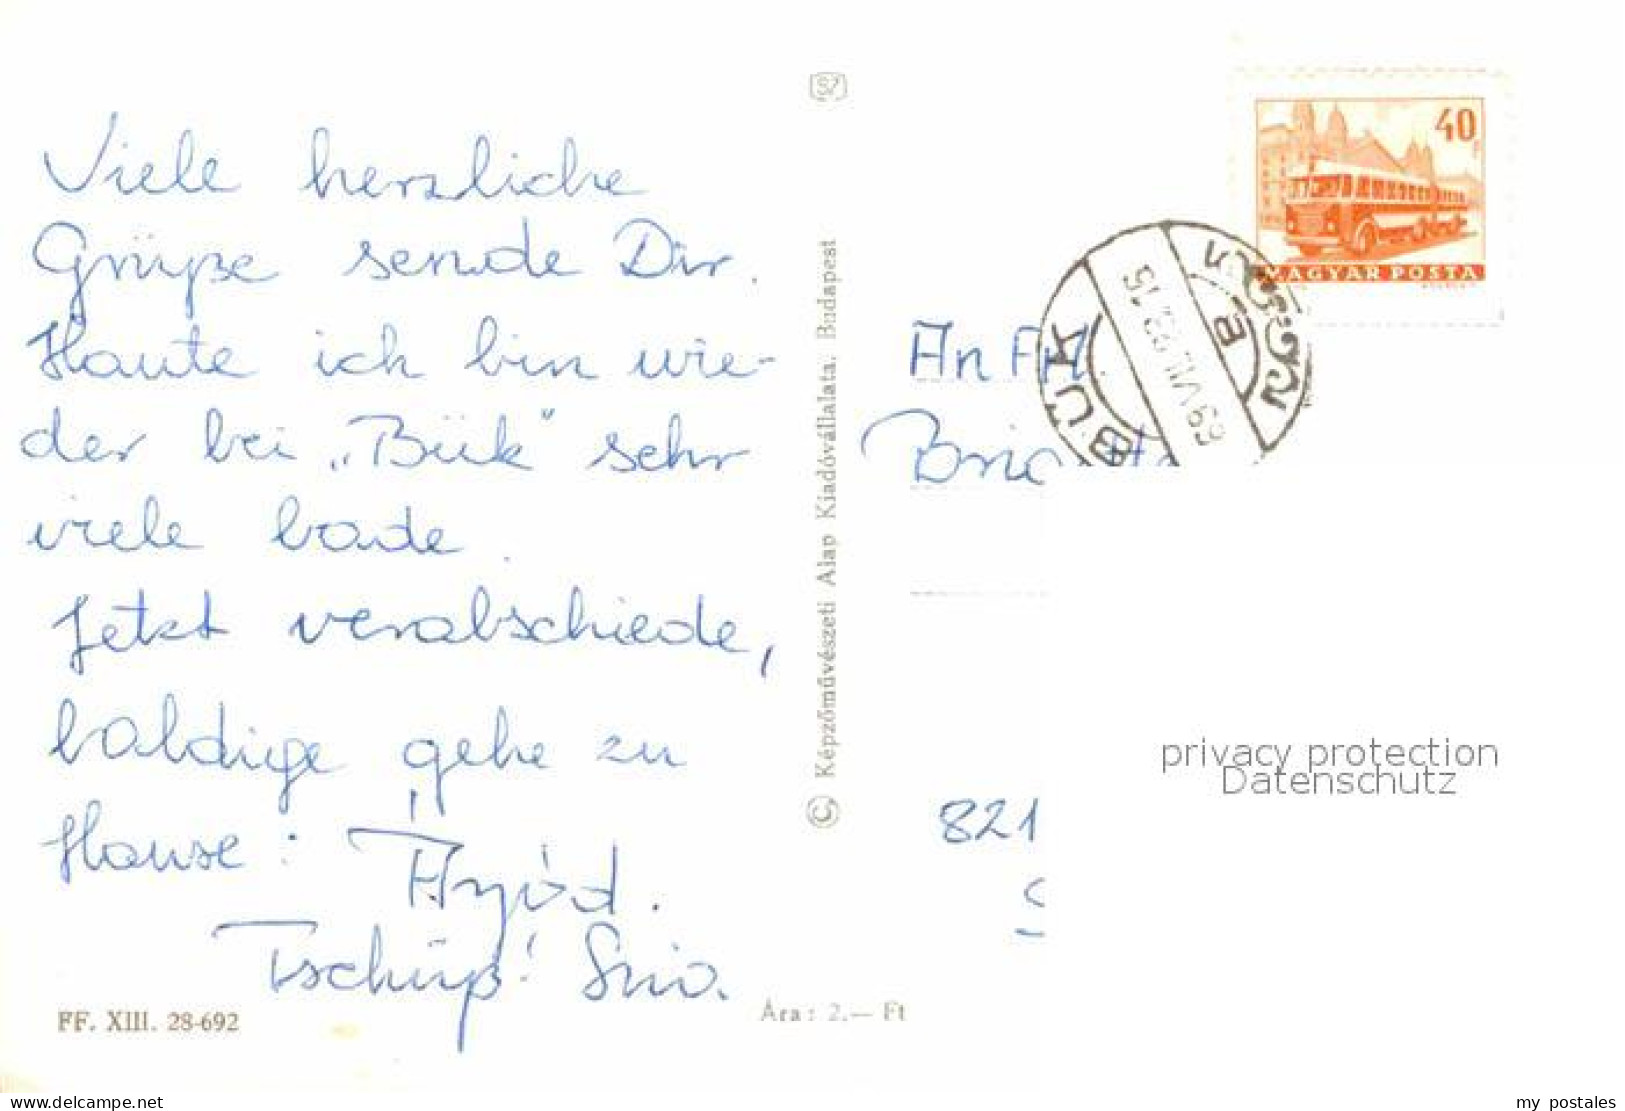 Viele herzliche
Grüße sende Dir.
Haute ich bin wie-
der bei „Bük" sehr
viele bade.
Jetzt verabschiede,
baldige gehe zu
Hause:
Tschüß!
FF. XIII. 28-692
Ára: 2.— Ft
© Képzőművészeti Alap Kiadóvállalata, Budapest
40 f
MAGYAR POSTA
BÜK
69 VIII 15
B
An
821
privacy protection
Datenschutz
www.delcampe.net
my_postales